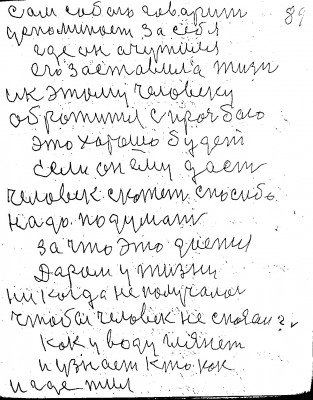 сам собою говарит 89
депоминает за себя
где он ачутился
его заставила жизн
и к этому человеку
обротился с прозбою
это харашо будет
если он ему даст
человек скажет спосибо
надо подумат
за что это
даром у жизни
никогда не получалос
чтобы человек не сказал?
как у воду глянет
и узнает кто как
и где жил